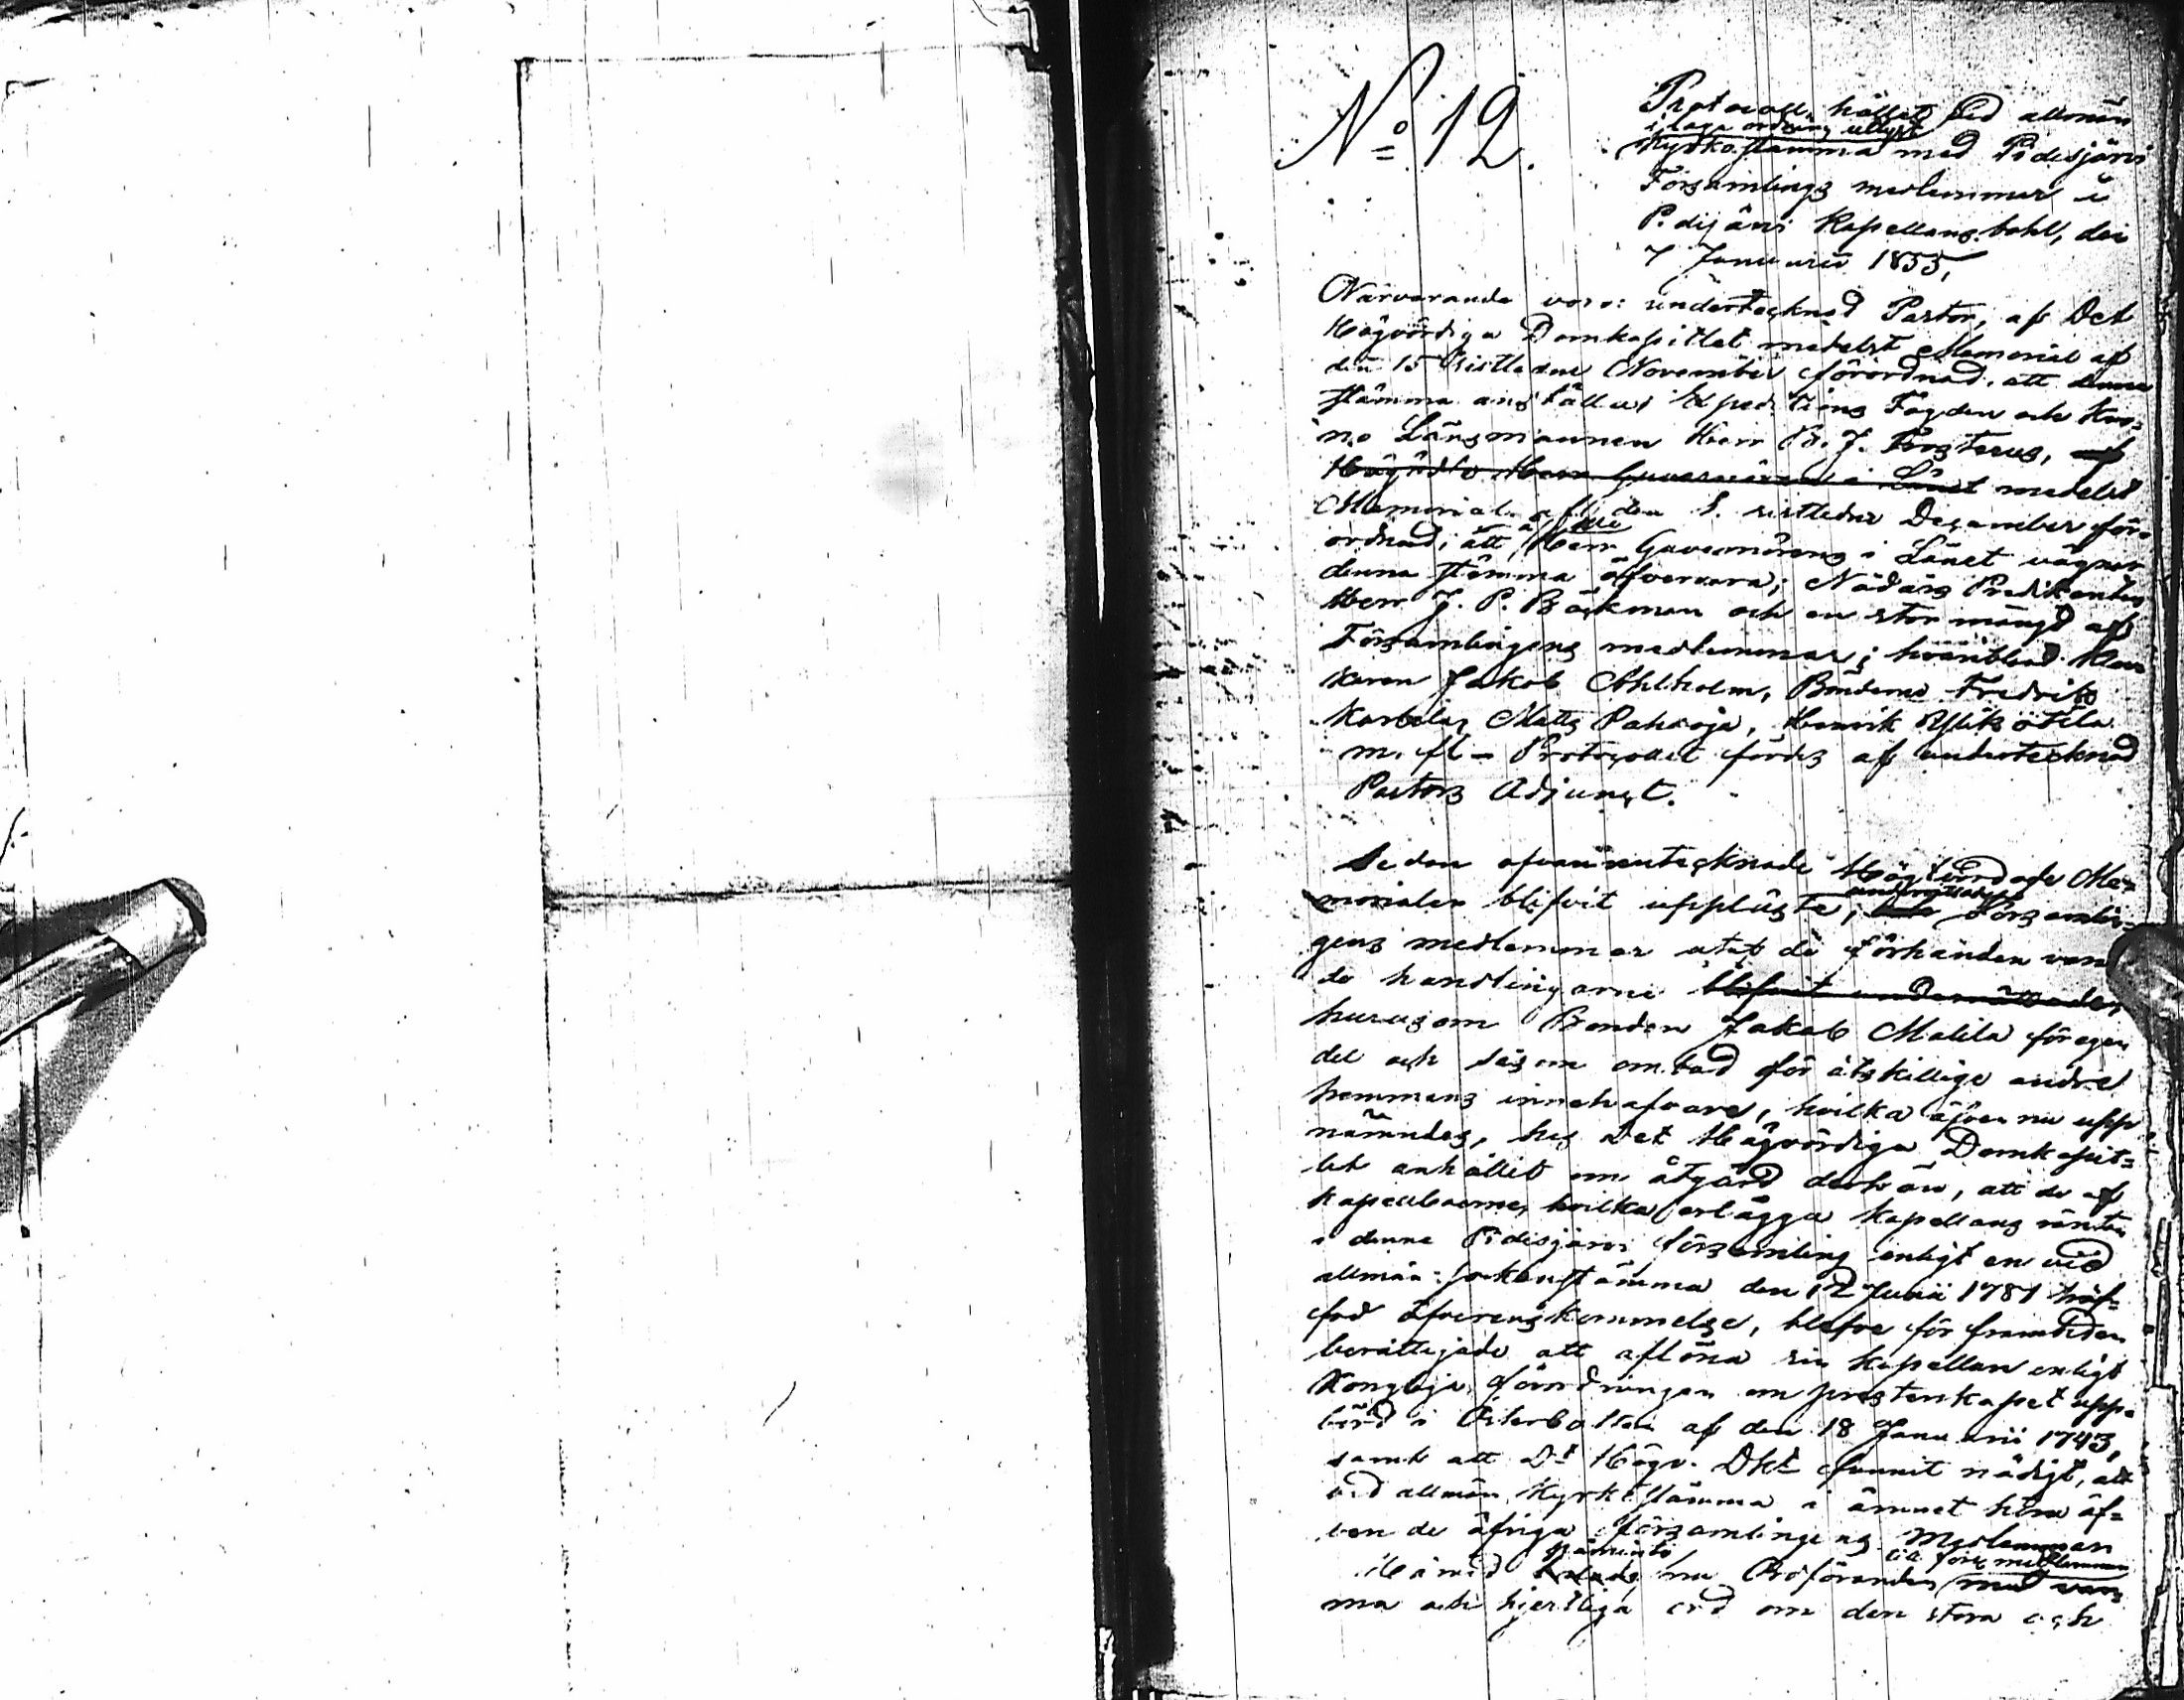 No 12.
Protocoll, hållet vid allmän
i laga ordning utlyst
Kyrkostämma med Pidisjärvi
Församlings medlemmar i
Pidisjärvi Kapellans bohl, den
7 Januarii 1855,
Närvarande voro: undertecknad Pastor, af Det
Högvördiga Domkapitlet medelst Memorial af
den 15 sistledne November förordnad, att denna
stämma anställa; Expeditions Fogden och Kro-
no Länsmannen Herr Forsterus, af
Herr Guvernören i Länet medelst
Memorial af den 1. sistledne December för-
ordnad, att å Herr Guvernörens i Länet vägnar
denna stämma öfvervara; Nådårs Predikanten
Herr J. P. Bäckman och en stor mängd af
Församlingens medlemmar; hvaribland Kloc-
karen Jakob Ahlholm, Bönderne Fredrik
Matts Pahaoja, Henrik Ylikötila
m. fl. – Protocollet fördes af undertecknad
Pastors Adjunct.
Sedan ofvanantecknade Memo-
underrättades
rialer blifvit upplästa, Församlin-
gens medlemmar utaf de förhanden varan-
de handlingarne blifvit underrättade,
hurusom Bonden Jakob Malila för egen
del och såsom ombud för åtskillige andre
hemmans innehafvare, hvilka äfven nu upp-
nämndes, hos Det Högvördiga Domkapit-
let anhållit om åtgärd derhän, att de af
Kapellboerne, hvilka erlägga Kapellans ränta
i denna Pidisjärvi församling enligt en vid
allmän sockenstämma den 12 Junii 1781 träf-
fad öfverenskommelse, blefve för framtiden
berättigade att aflöna sin Kapellan enligt
Kongliga förordningen om presterskapet upp-
börd i Österbotten af den 18 Januarii 1743,
samt att Dt Högv. Dkt funnit nödigt, att
vid allmän Kyrkostämma i ämnet höra äf-
ven de öfriga församlingens Medlemmar
påminte till förs. medlemmar
Härvid nu Ordföranden med var-
ma och hjertliga ord om den stora och